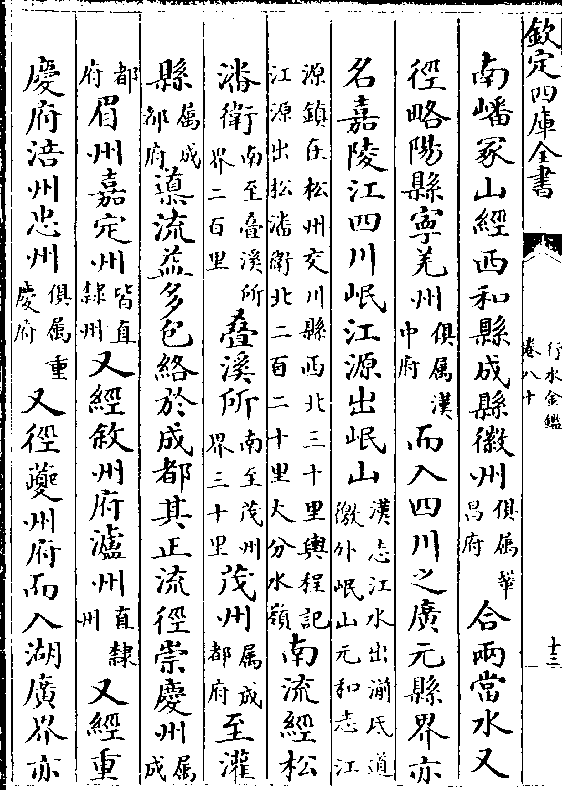 欽定四庫全書
行水金鑑
卷八十
十三
南嶓冢山經西和縣成縣徽州俱属華昌府合兩當水又
徑略陽縣寧羌州俱属漢中府而入四川之廣元縣界亦
名嘉陵江四川岷江源出岷山漢志江水出湔氐道徼外岷山元和志江
源鎮在松州交川縣西北三十里輿程記江源出松潘衛北二百二十里大分水嶺南流經松
潘衛南至疊溪所界二百里疊溪所南至茂州界三十里茂州属成都府至灌
縣属成都府流益多包絡於成都其正流徑崇慶州属成
都府眉州嘉定州皆直隸州又經敘州府瀘州直隸州又經重
慶府涪州忠州俱属重慶府又徑夔州府而入湖廣界亦